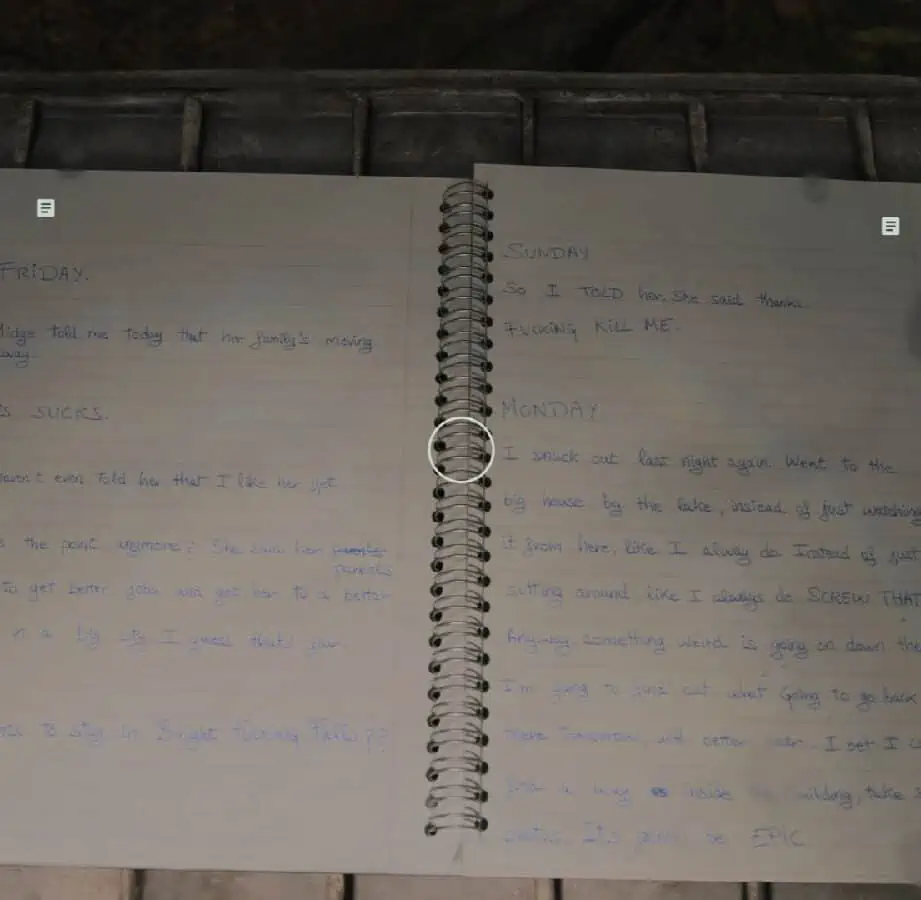 FRIDAY.
Midge told me today that her family's moving
away.
SUCKS.
haven't even told her that I like her yet
the point anymore? She said her parents
parents
to get better jobs and get her to a better
in a big city. I guess that's fair
to stay in Bright Falls??
SUNDAY
So I TOLD her. She said thanks.
FUCKING KILL ME.
MONDAY
I snuck out last night again. Went to the
big house by the lake, instead of just watching
it from here, like I always do. Instead of just
sitting around, like I always do SCREW THAT
Anyway, something weird is going on down the
I'm going to find out what. Going to go back
there tomorrow, with better I bet I
find a way inside building, take
photos. It's gonna be EPIC